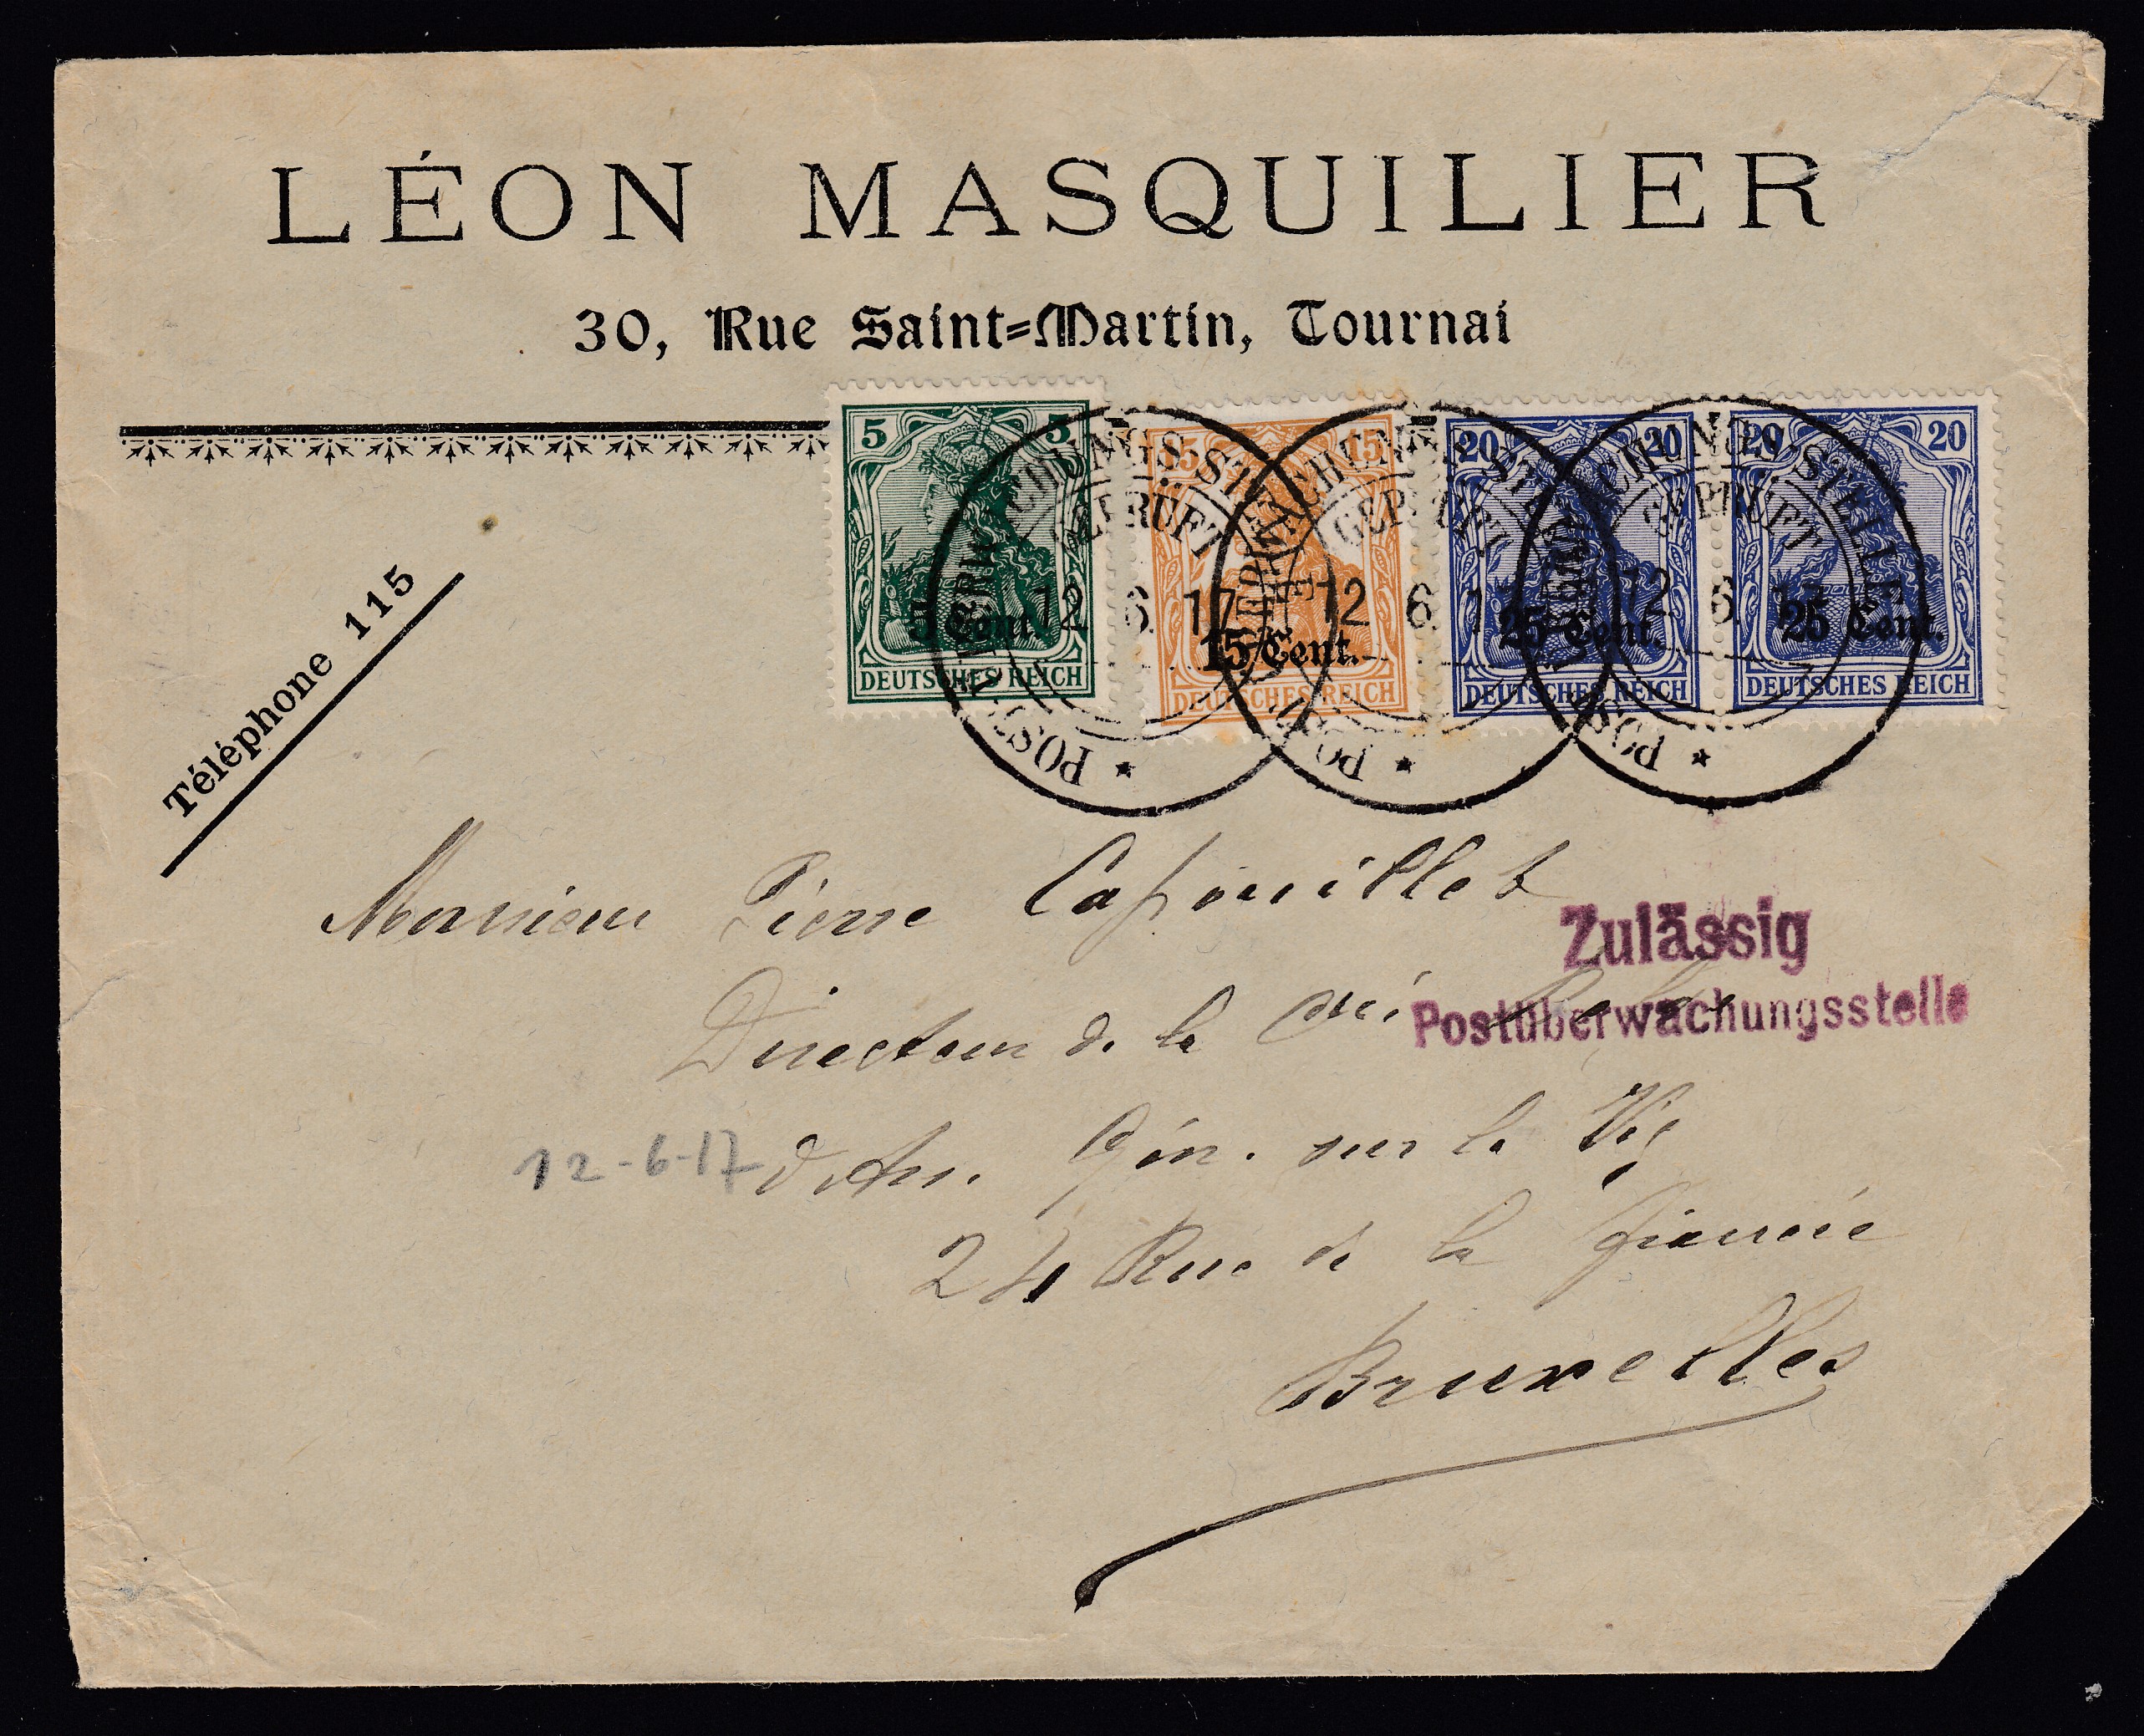 LÉON MASQUILIER
30, Rue Saint-Martin, Tournai
Téléphone 115
5 5
5 Cent.
DEUTSCHES REICH
15 15
15 Cent.
DEUTSCHES REICH
20 20
25 Cent.
DEUTSCHES REICH
20 20
25 Cent.
DEUTSCHES REICH
GEPRÜFT
12 6. 17
12 6. 17
12 6. 17
Monsieur Pierre Capouillet
Zulässig
Directeur de la Cie
Postüberwachungsstelle
12-6-17
d'Ass. Gén. sur la Vie
24 Rue de la Fiancée
Bruxelles